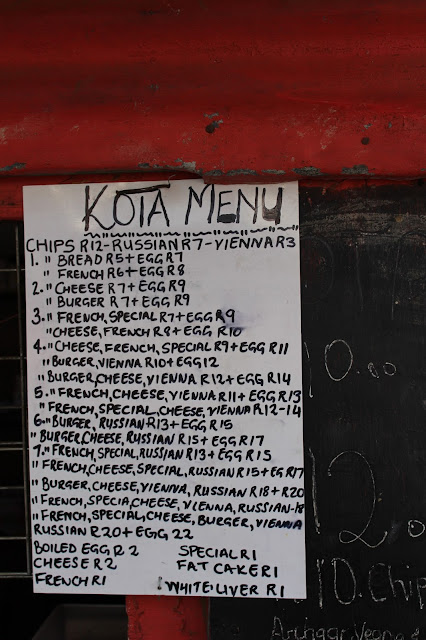 KOTA MENU
CHIPS R12-RUSSIAN R7-VIENNA R3
1. " BREAD R5+EGG R7
" FRENCH R6+EGG R8
2. " CHEESE R7+EGG R9
" BURGER R7+EGG R9
3. " FRENCH, SPECIAL R7+EGG R9
"CHEESE, FRENCH R8+EGG R10
4. "CHEESE, FRENCH, SPECIAL R9+EGG R11
"BURGER, VIENNA R10+EGG 12
"BURGER, CHEESE, VIENNA R12+EGG R14
5. "FRENCH, CHEESE, VIENNA R11+EGG R13
"FRENCH, SPECIAL, CHEESE, VIENNA R12-14
6. "BURGER, RUSSIAN-R13+EGG R15
"BURGER, CHEESE, RUSSIAN R15+EGG R17
7. "FRENCH, SPECIAL, RUSSIAN R13+EGG R15
"FRENCH, CHEESE, SPECIAL, RUSSIAN R15+EG R17
"BURGER, CHEESE, VIENNA, RUSSIAN R18+R20
"FRENCH, SPECIA, CHEESE, VIENNA, RUSSIAN-18
"FRENCH, SPECIAL, CHEESE, BURGER, VIENNA
RUSSIAN R20+EGG 22
BOILED EGG R2 SPECIAL R1
CHEESE R2 FAT CAKE R1
FRENCH R1 WHITE LIVER R1
10.00
12.
R10. Chip